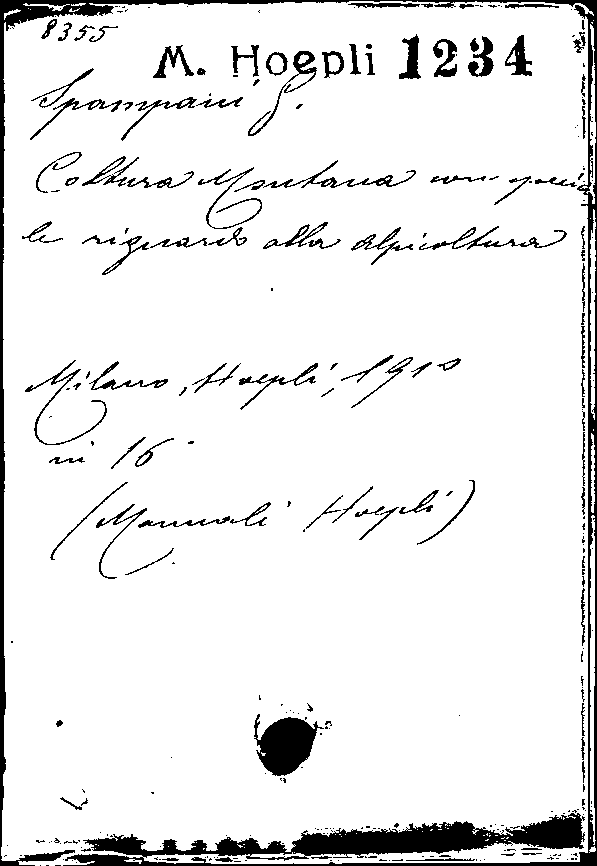 8355
M. Hoepli 1234
Spampani G.
Coltura Montana con specia
le riguardo alla Alpicoltura
Milano, Hoepli, 1910
in 16°
(Manuali Hoepli)